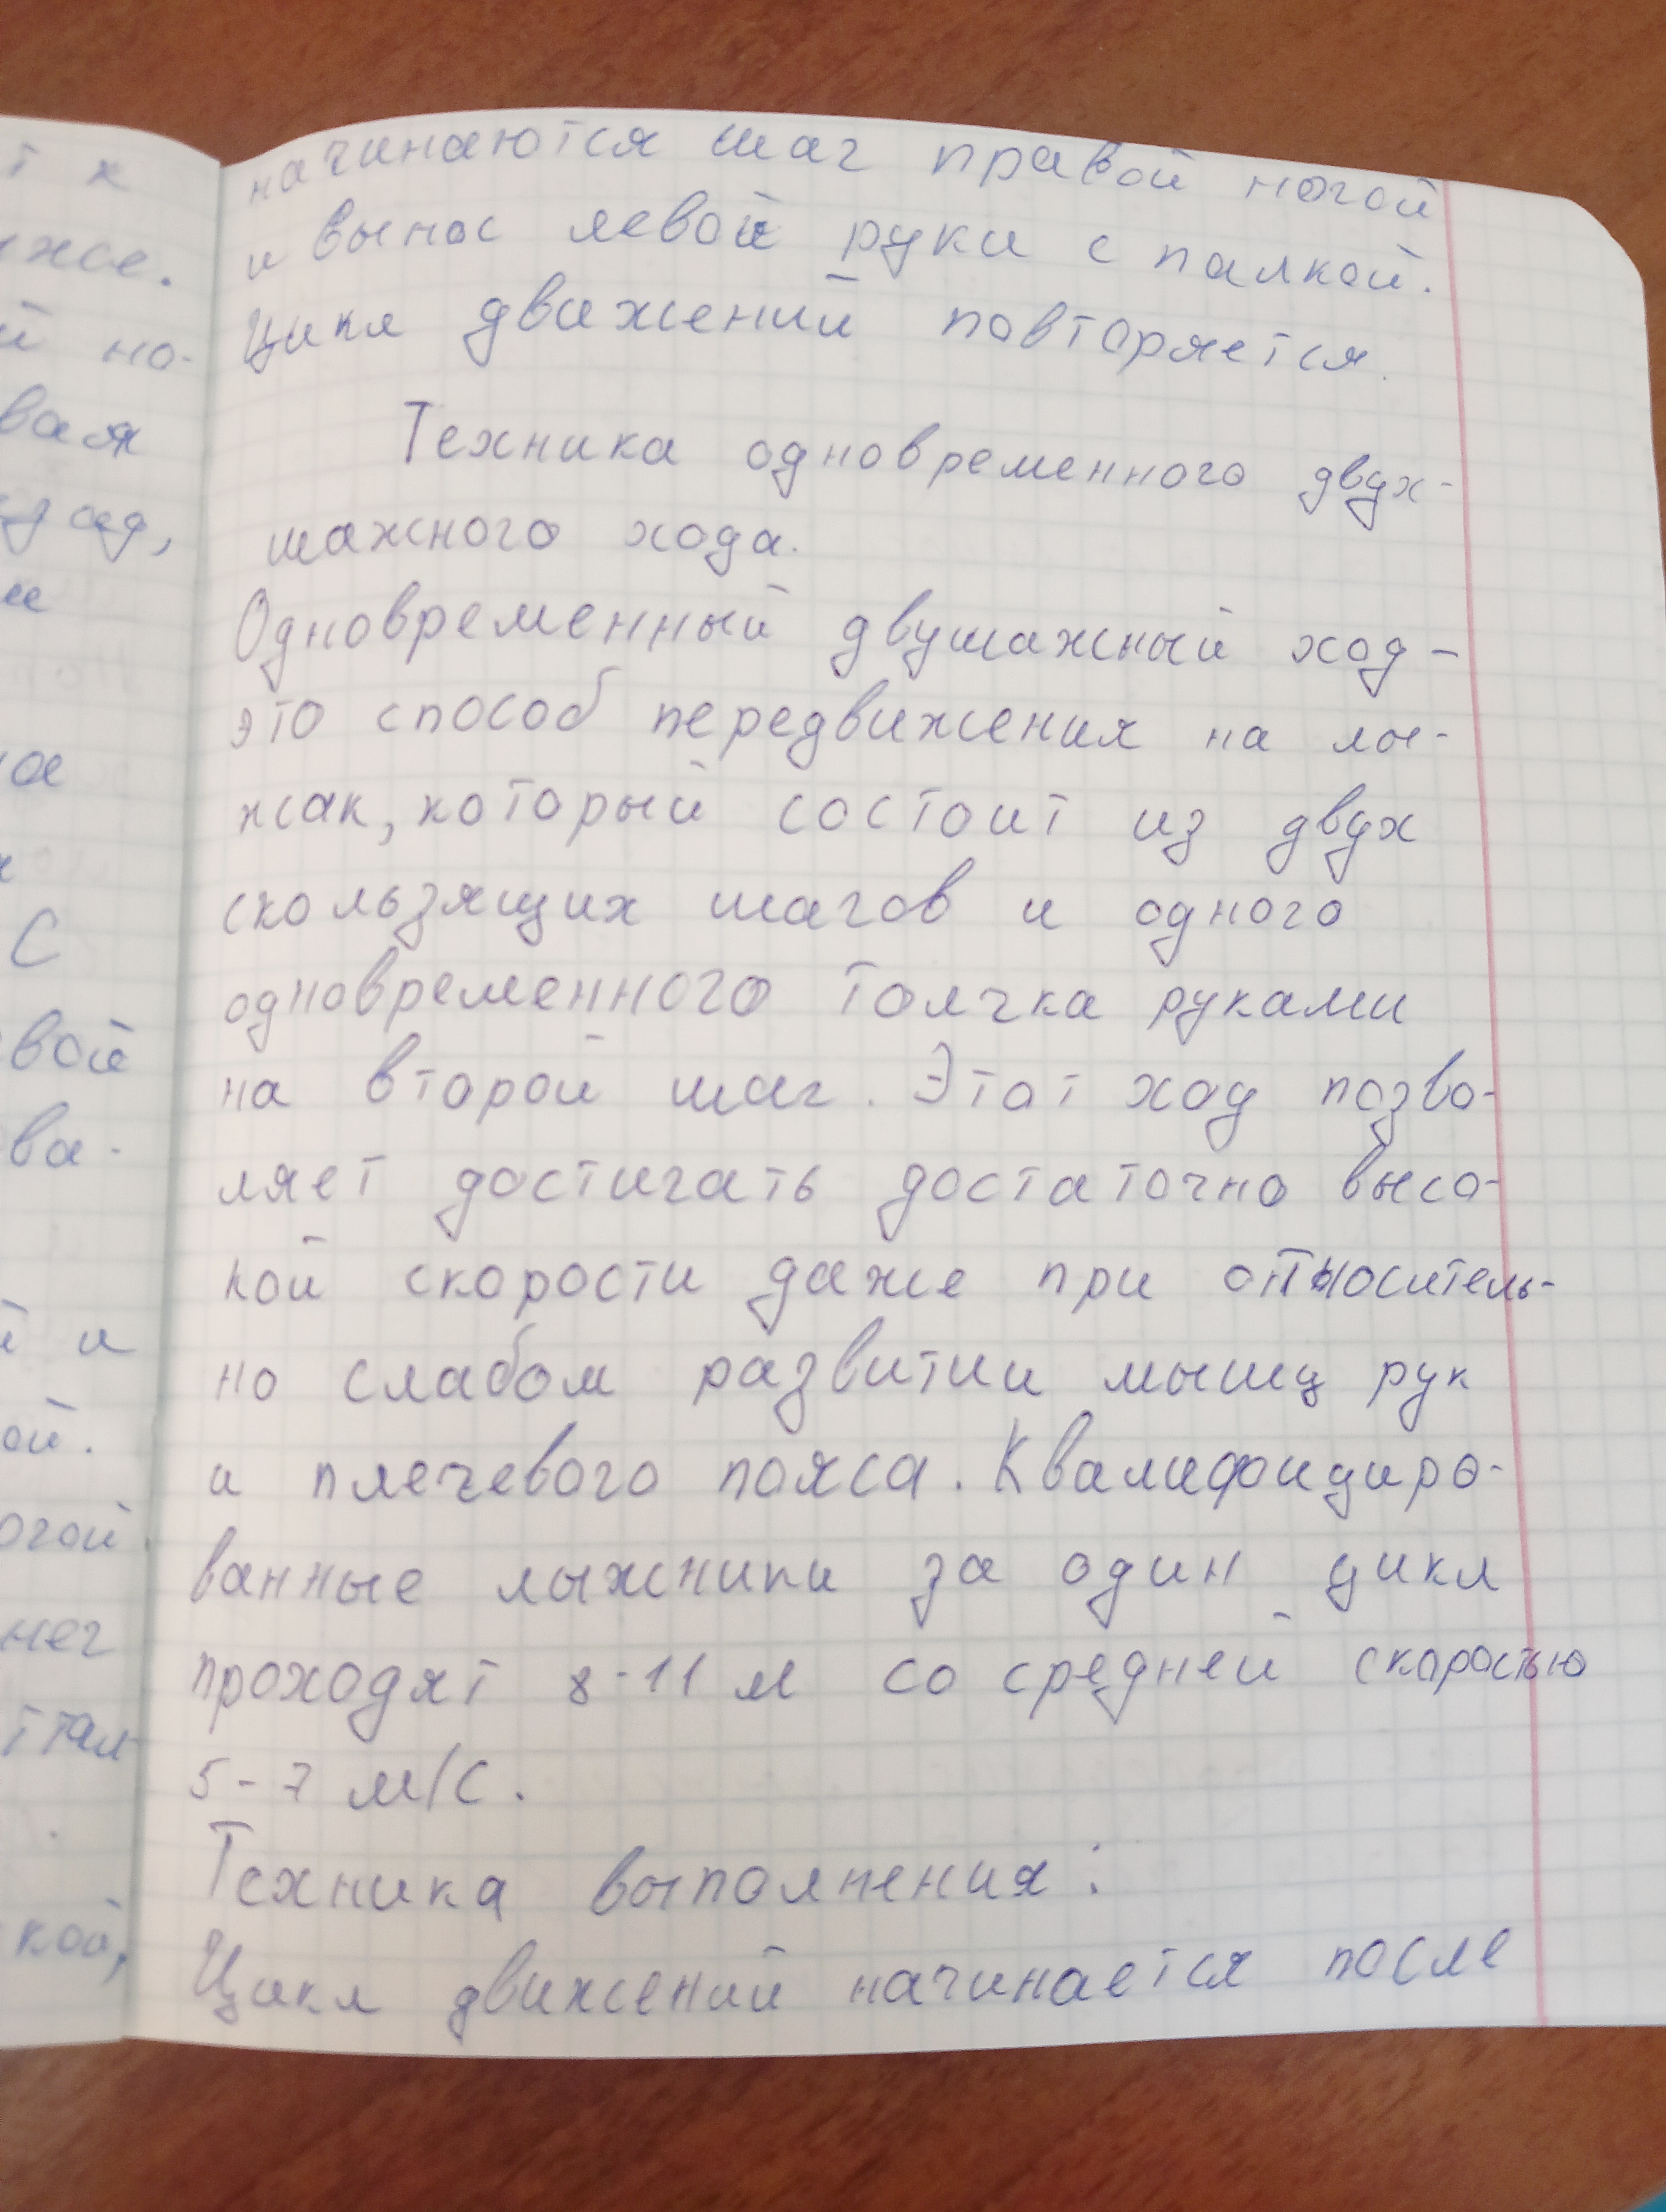 начинаются шаг правой ногой
и вынос левой руки с палкой.
Цикл движений повторяется.
Техника одновременного двух-
шажного хода.
Одновременный двушажный ход -
это способ передвижения на лы-
жак, который состоит из двух
скользящих шагов и одного
одновременного толчка руками
на второй шаг. Этот ход позво-
ляет достигать достаточно высо-
кой скорости даже при относитель-
но слабом развитии мышц рук
и плечевого пояса. Квалифоидиро-
ванные лыжники за один цикл
проходят 8-11 м со средней скоростью
5-7 м/с.
Техника выполнения:
Цикл движений начинается после